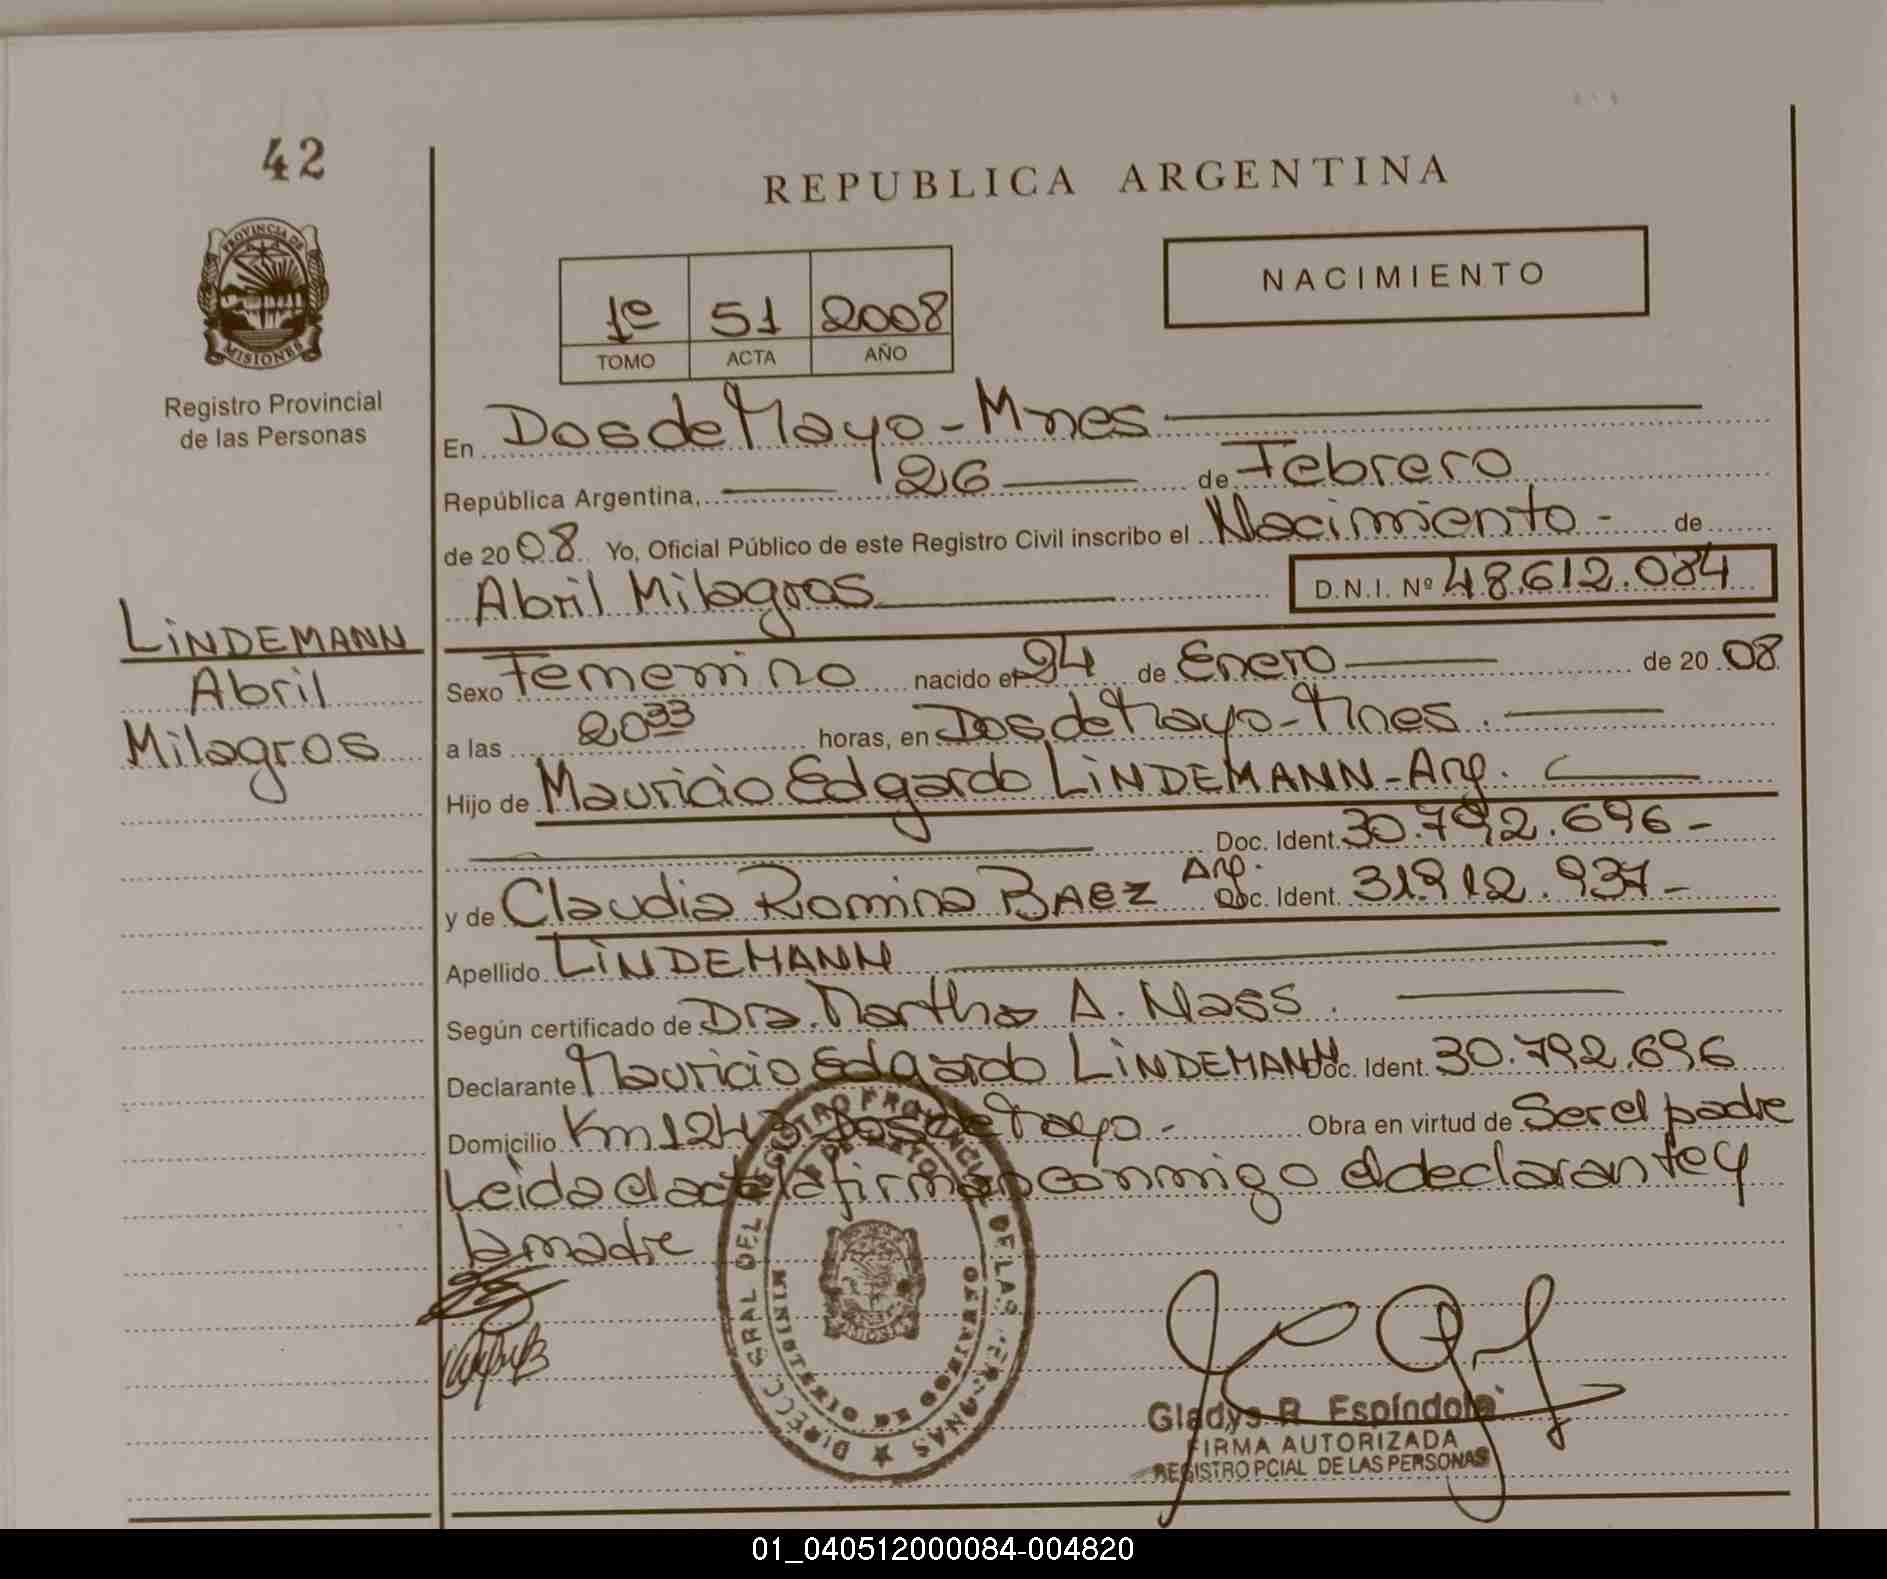 42
REPUBLICA ARGENTINA
PROVINCIA DE
MISIONES
Registro Provincial
de las Personas
NACIMIENTO
1º 51 2008
TOMO ACTA AÑO
En Dos de Mayo - Mnes
República Argentina, 26 de Febrero
de 2008 Yo, Oficial Público de este Registro Civil inscribo el Nacimiento - de
Abril Milagros D.N.I. Nº 48.612.084
LiNDEMANN
Abril
Milagros
Sexo Femenino nacido el 24 de Enero de 2008
a las 20 33 horas, en Dos de Mayo - Mnes.
Hijo de Mauricio Edgardo LiNDEMANN - Arg.
Doc. Ident. 30.792.696 -
y de Claudia Romina BAez Arg. Doc. Ident. 31.912.937 -
Apellido LiNDEMANN
Según certificado de Dra. Martha A. Nass.
Declarante Mauricio Edgardo LiNDEMANN Doc. Ident. 30.792.696
Domicilio Km 1243 Dos de Mayo - Obra en virtud de Ser el padre
Leida el acta la firman conmigo el declarante y
la madre
DIRECC. GRAL DEL REGISTRO PROVINCIAL DE LAS PERSONAS
DOS DE MAYO
MINISTERIO DE GOBIERNO
Gladys R. Espíndola
FIRMA AUTORIZADA
REGISTRO PCIAL DE LAS PERSONAS
01_040512000084-004820